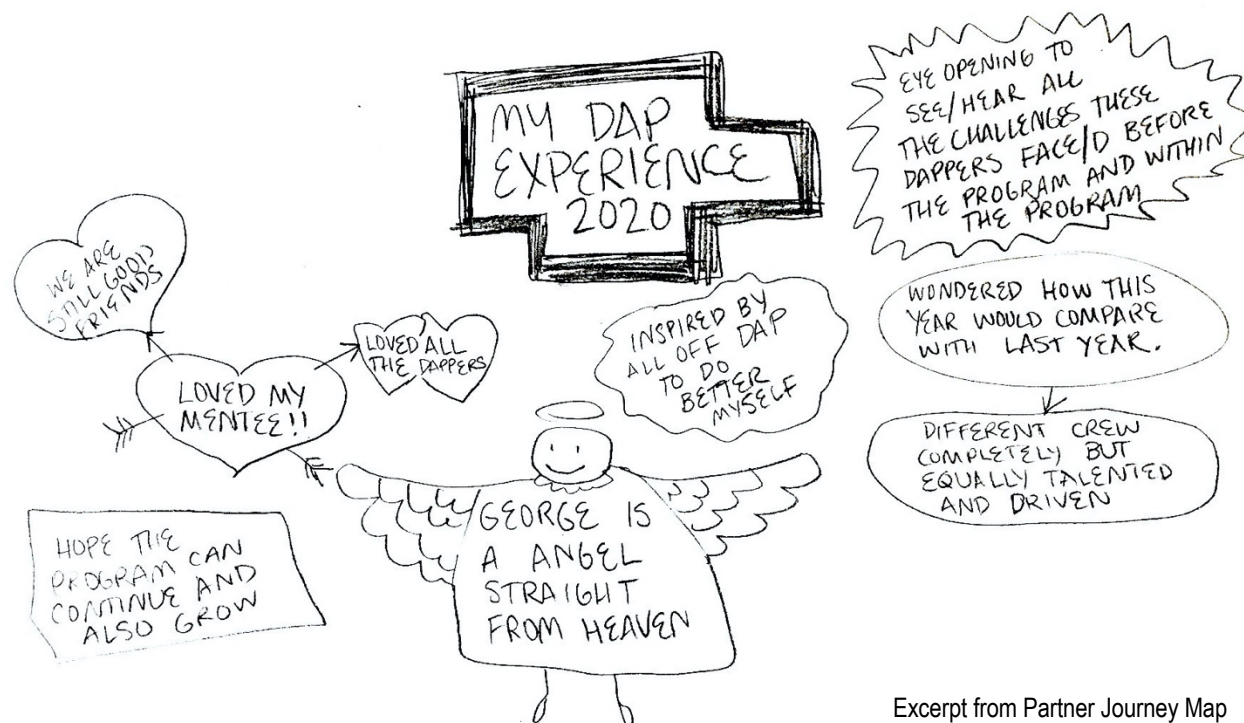 MY DAP
EXPERIENCE
2020
EYE OPENING TO
SEE/HEAR ALL
THE CHALLENGES THESE
DAPPERS FACE/D BEFORE
THE PROGRAM AND WITHIN
THE PROGRAM
WE ARE
STILL GOOD
FRIENDS
LOVED MY
MENTEE!!
LOVED ALL
THE DAPPERS
INSPIRED BY
ALL OFF DAP
TO DO
BETTER
MYSELF
WONDERED HOW THIS
YEAR WOULD COMPARE
WITH LAST YEAR.
DIFFERENT CREW
COMPLETELY BUT
EQUALLY TALENTED
AND DRIVEN
HOPE THE
PROGRAM CAN
CONTINUE AND
ALSO GROW
GEORGE IS
A ANGEL
STRAIGHT
FROM HEAVEN
Excerpt from Partner Journey Map